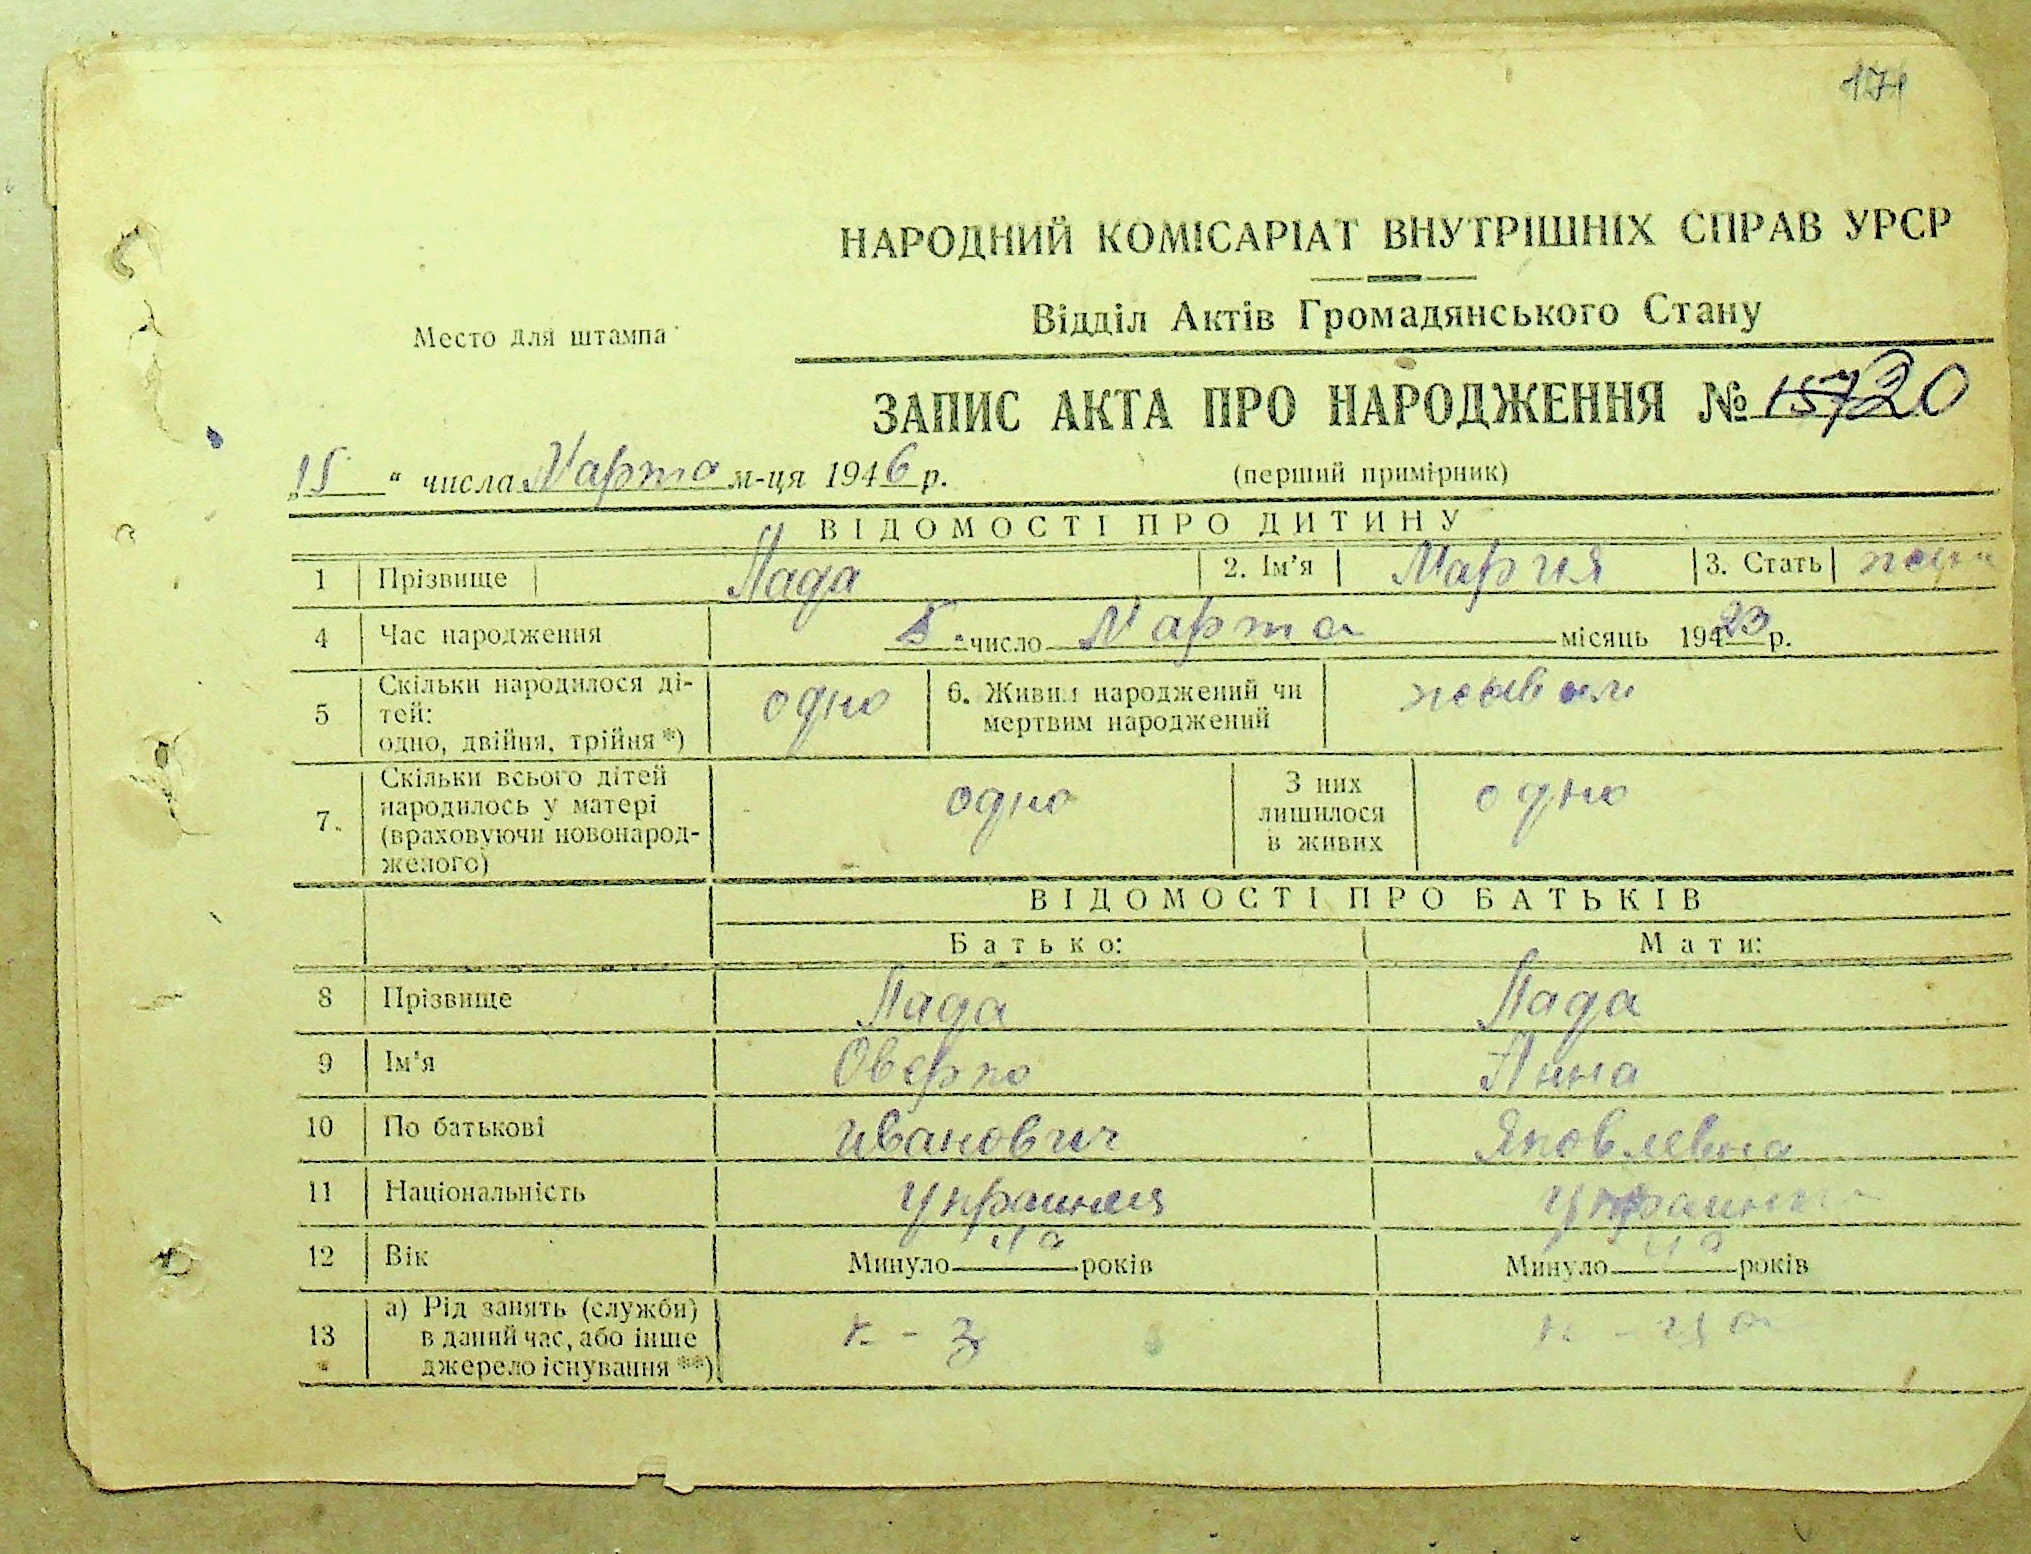 171
НАРОДНИЙ КОМІСАРІАТ ВНУТРІШНІХ СПРАВ УРСР
Відділ Актів Громадянського Стану
Место для штампа
ЗАПИС АКТА ПРО НАРОДЖЕННЯ № 20
„15“ числа Марта м-ця 1946 р. (перший примірник)
ВІДОМОСТІ ПРО ДИТИНУ
1 Прізвище Лада 2. Ім'я Мария 3. Стать
4 Час народження 5 число Марта місяць 1923 р.
5 Скільки народилося ді-
тей:
одно, двійня, трійня *) одно 6. Живим народжений чи
мертвим народжений живым
7. Скільки всього дітей
народилось у матері
(враховуючи новонарод-
женого) одно З них
лишилося
в живих одно
ВІДОМОСТІ ПРО БАТЬКІВ
Батько: Мати:
8 Прізвище Лада Лада
9 Ім'я Оверко Анна
10 По батькові Иванович Яковлевна
11 Національність
12 Вік Минуло років Минуло років
13 а) Рід занять (служби)
в даний час, або інше
джерело існування **) к-з